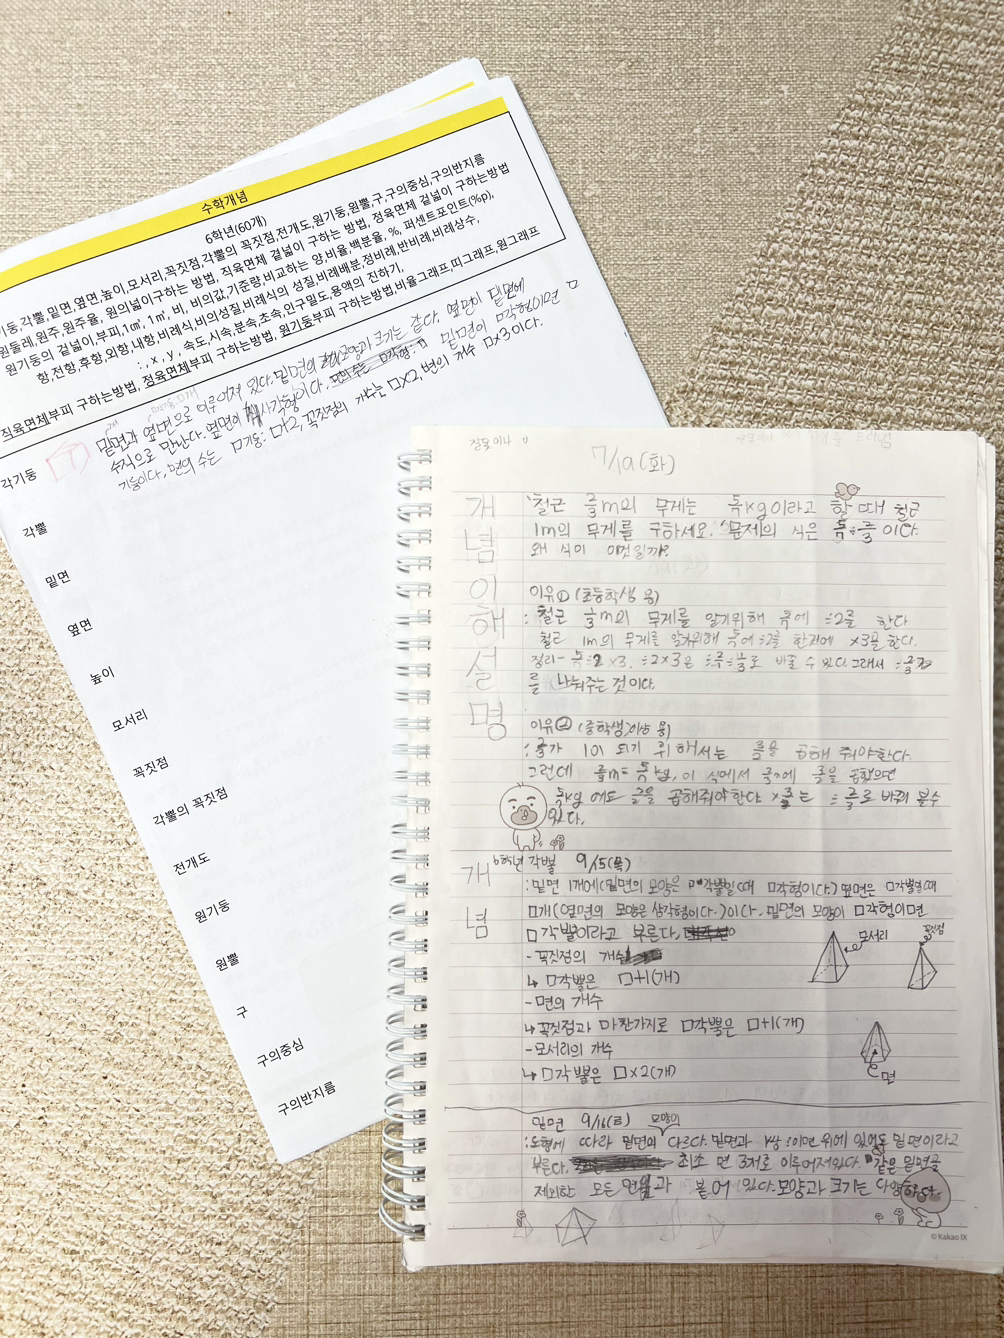 수학개념
6학년(60개)
기둥,각뿔,밑면,옆면,높이,모서리,꼭짓점,각뿔의 꼭짓점,전개도,원기둥,원뿔,구,구의중심,구의반지름
원둘레,원주,원주율, 원의넓이구하는 방법, 직육면체 겉넓이 구하는 방법, 정육면체 겉넓이 구하는방법
원기둥의 겉넓이,부피,1㎤, 1㎥, 비, 비의값,기준량,비교하는 양,비율,백분율, %, 퍼센트포인트(%p),
항,전항,후항,외항,내항,비례식,비의성질,비례식의 성질,비례배분,정비례,반비례,비례상수,
: , x , y , 속도,시속,분속,초속,인구밀도,용액의 진하기,
직육면체부피 구하는방법, 정육면체부피 구하는방법, 원기둥부피 구하는방법,비율그래프,띠그래프,원그래프
각기둥
밑면과 옆면으로 이루어져 있다. 밑면의 모양과 크기는 같다. 옆면이 밑면에
수직으로 만난다. 옆면이 직사각형이다. 밑면이 □각형이면 □
기둥이다. 면의 수는 □기둥: □+2, 꼭짓점의 개수는 □×2, 변의 개수 □×3이다.
각뿔
밑면
옆면
높이
모서리
꼭짓점
각뿔의 꼭짓점
전개도
원기둥
원뿔
구
구의중심
구의반지름
7/19(화)
개념이해설명
'철근 m의 무게는 kg이라고 할 때 철근
1m의 무게를 구하세요.' 문제의 식은 이다.
왜 식이 이것일까?
이유① (초등학생 용)
: 철근 m의 무게를 알기위해 에 ÷2를 한다
철근 1m의 무게를 알기위해 에 ÷2를 한것에 ×3을 한다.
정리- ÷2×3. ÷2×3은 로 바꿀 수 있다. 그래서
를 나눠주는 것이다.
이유② (중학생 이상 용)
: 가 1이 되기 위해서는 을 곱해 줘야한다.
그런데 m= kg, 이 식에서 에 을 곱했으면
kg 에도 을 곱해줘야한다 는 로 바꿔 볼수
있다.
개념
6학년 각뿔 9/15(목)
: 밑면 1개에(밑면의 모양은 □각뿔일때 □각형이다.) 옆면은 □각뿔일때
□개(옆면의 모양은 삼각형이다.)이다. 밑면의 모양이 □각형이면
□각뿔이라고 부른다.
- 꼭짓점의 개수
↳ □각뿔은 □+1(개)
- 면의 개수
↳ 꼭짓점과 마찬가지로 □각뿔은 □+1(개)
- 모서리의 개수
↳ □각뿔은 □×2(개)
모서리
꼭짓점
면
밑면 9/16(금)
: 도형에 따라 밑면의 모양이 다르다. 밑면과 위에 있어도 밑면이라고
부른다. 최소 면 3개로 이루어져있다. 같은 밑면을
제외한 모든 면과 붙어 있다. 모양과 크기는 다양하다.
© Kakao IX